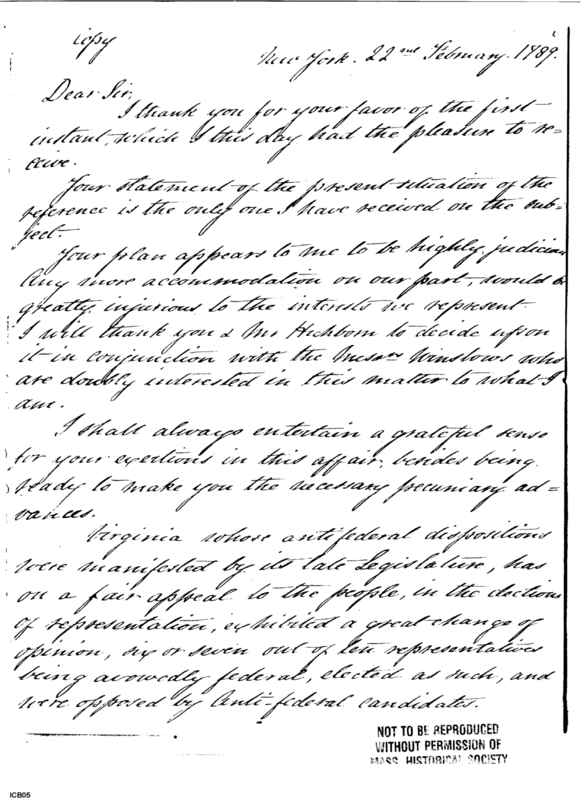 copy
New York. 22nd February. 1789.
Dear Sir,
I thank you for your favor of the first
instant, which I this day had the pleasure to re=
ceive.
Your statement of the present situation of the
reference is the only one I have received on the sub=
ject.
Your plan appears to me to be highly judicious
Any more accommodation on our part, would be
greatly injurious to the interests we represent.
I will thank you & Mr Hichborn to decide upon
it in conjunction with the Messrs Winslows who
are doubly interested in this matter to what I
am.
I shall always entertain a grateful sense
for your exertions in this affair, besides being
ready to make you the necessary pecuniary ad=
vances.
Virginia whose antifederal dispositions
were manifested by its late Legislature, has
on a fair appeal to the people, in the elections
of representation, exhibited a great change of
opinion, six or seven out of ten representatives
being avowedly federal, elected as such, and
were opposed by Anti-federal candidates.
NOT TO BE REPRODUCED
WITHOUT PERMISSION OF
MASS. HISTORICAL SOCIETY
ICB05